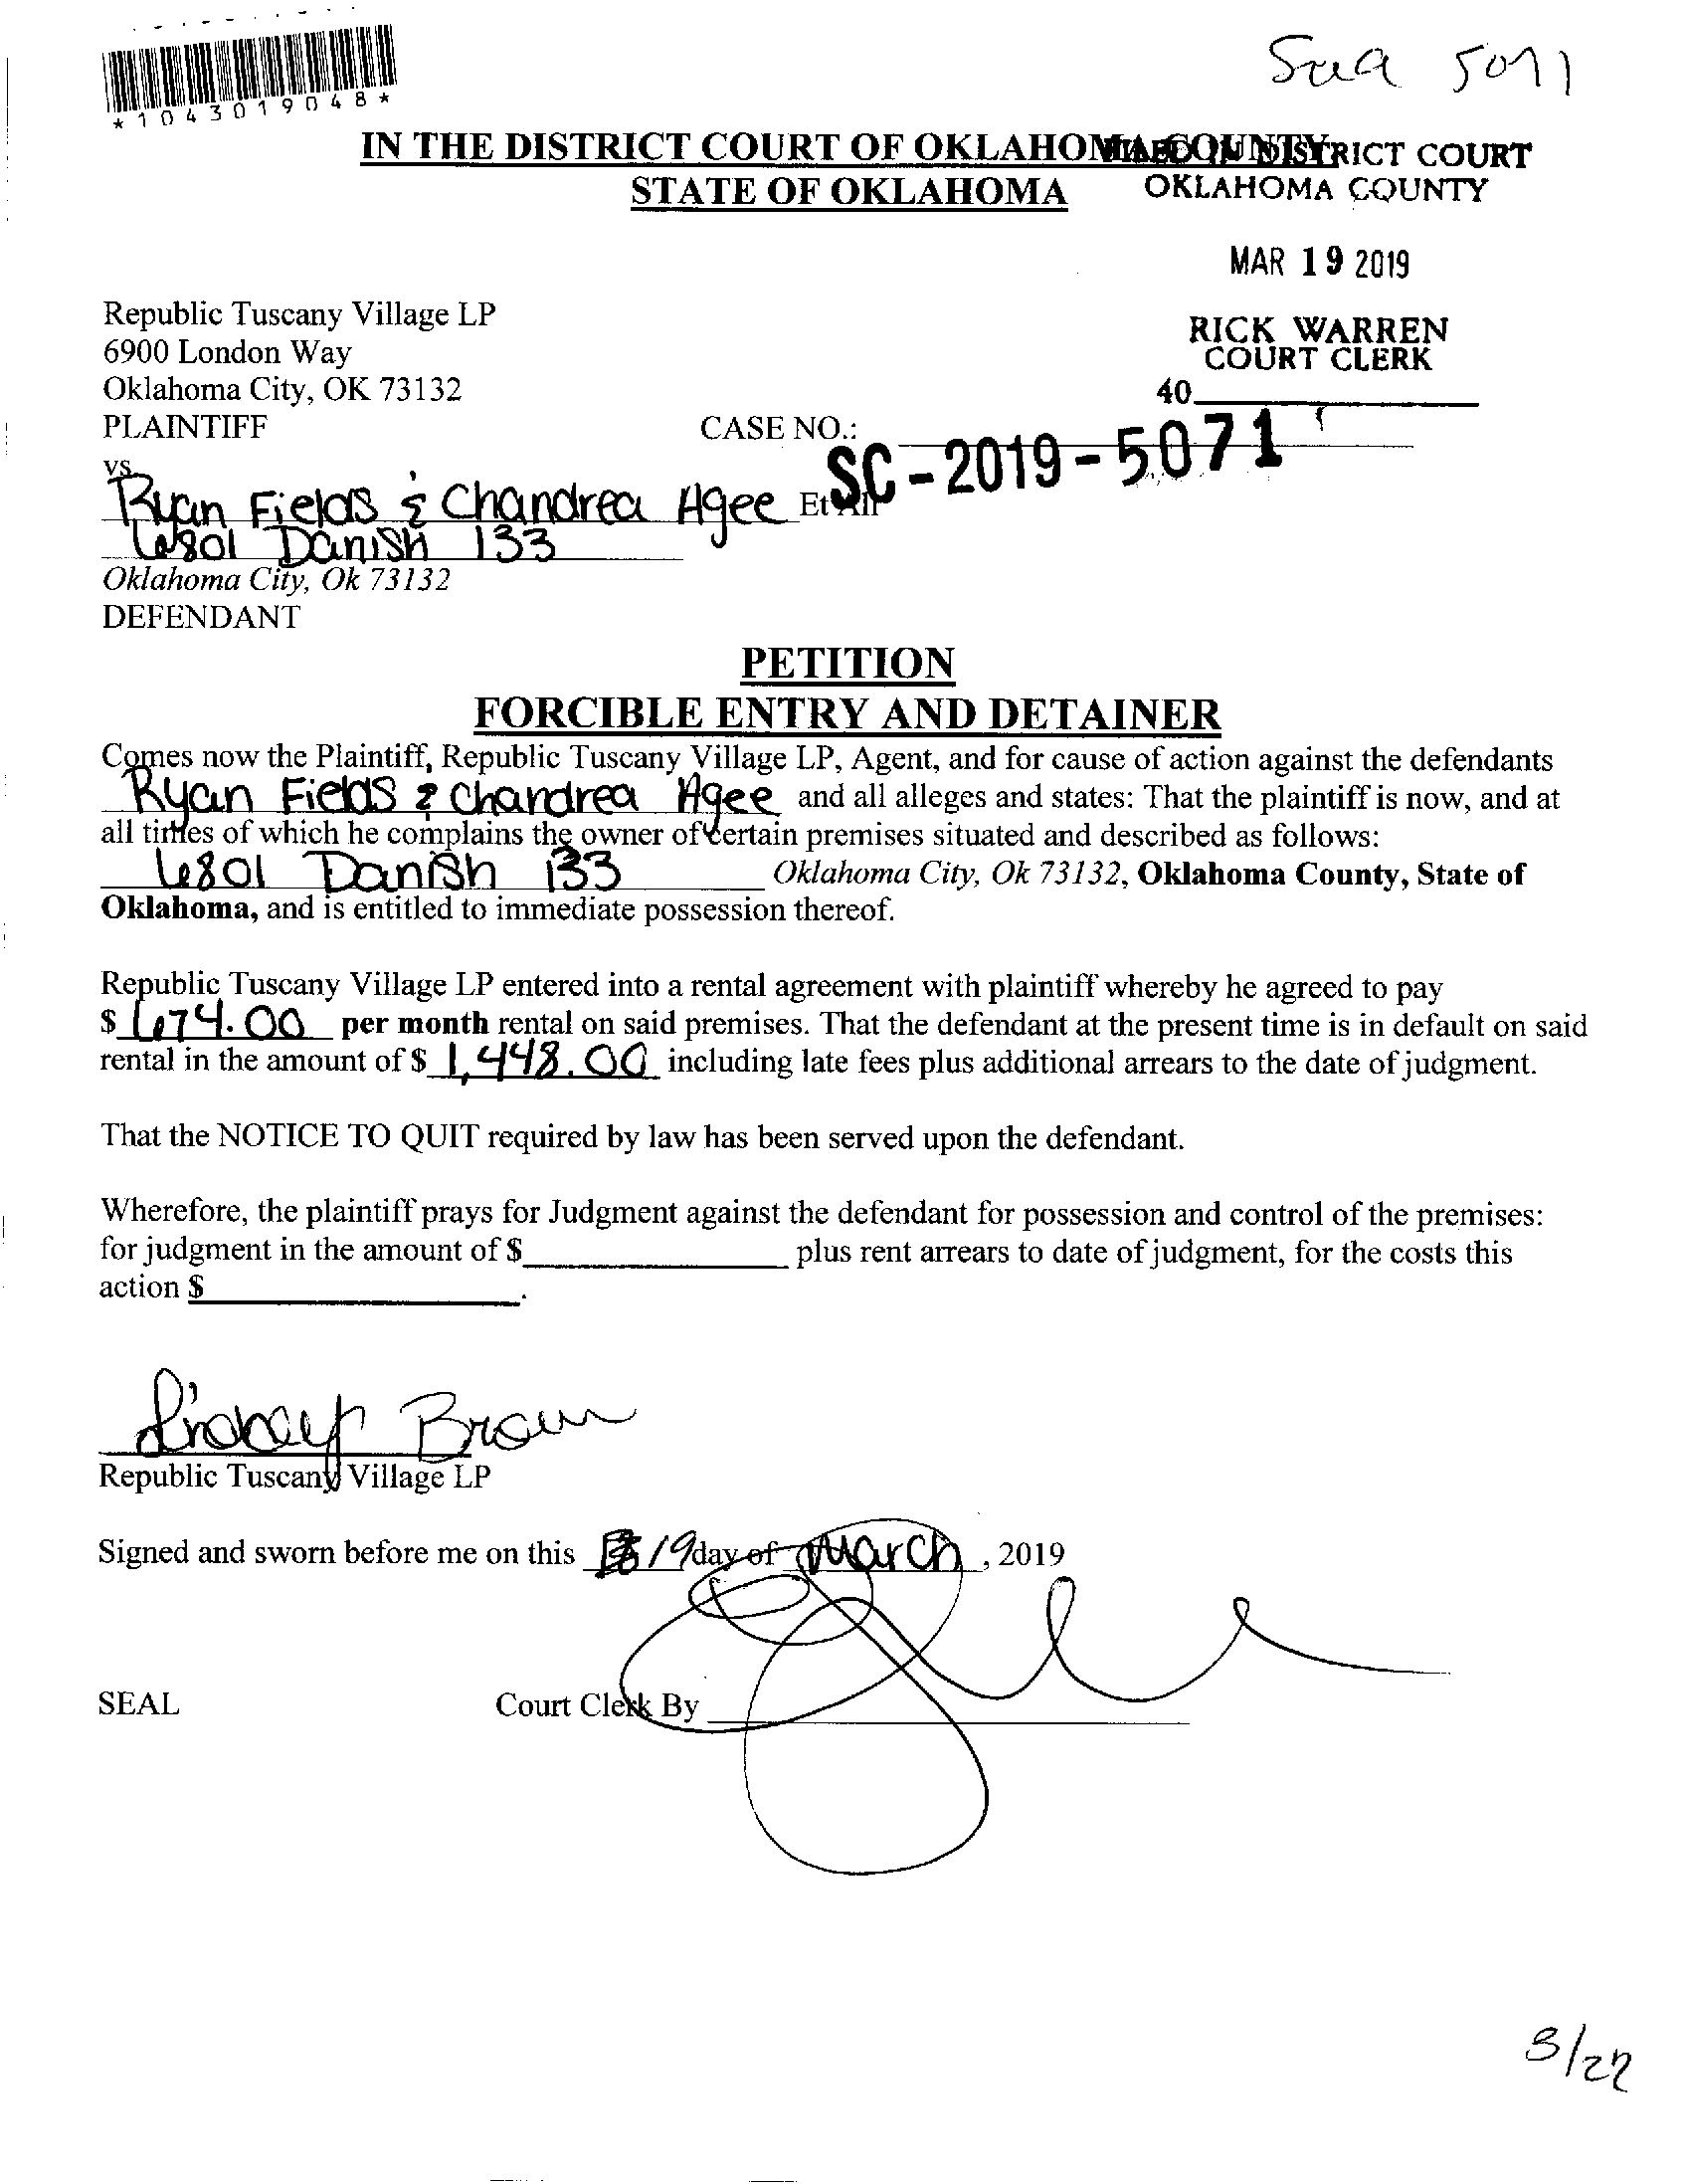 *1043019048*
IN THE DISTRICT COURT OF OKLAHOMA COUNTY
STATE OF OKLAHOMA
FILED IN DISTRICT COURT
OKLAHOMA COUNTY
MAR 19 2019
RICK WARREN
COURT CLERK
40
Republic Tuscany Village LP
6900 London Way
Oklahoma City, OK 73132
PLAINTIFF
CASE NO.:
SC-2019-5071
vs.
Ryan Fields & Chandrea Agee Et All
6801 Danish 133
Oklahoma City, Ok 73132
DEFENDANT
PETITION
FORCIBLE ENTRY AND DETAINER
Comes now the Plaintiff, Republic Tuscany Village LP, Agent, and for cause of action against the defendants
Ryan Fields & Chandrea Agee and all alleges and states: That the plaintiff is now, and at
all times of which he complains the owner of certain premises situated and described as follows:
6801 Danish 133 Oklahoma City, Ok 73132, Oklahoma County, State of
Oklahoma, and is entitled to immediate possession thereof.
Republic Tuscany Village LP entered into a rental agreement with plaintiff whereby he agreed to pay
$ 674.00 per month rental on said premises. That the defendant at the present time is in default on said
rental in the amount of $ 1,448.00 including late fees plus additional arrears to the date of judgment.
That the NOTICE TO QUIT required by law has been served upon the defendant.
Wherefore, the plaintiff prays for Judgment against the defendant for possession and control of the premises:
for judgment in the amount of $ plus rent arrears to date of judgment, for the costs this
action $ .
Lindsey Brown
Republic Tuscany Village LP
Signed and sworn before me on this 19 day of March, 2019
SEAL
Court Clerk By
3/22